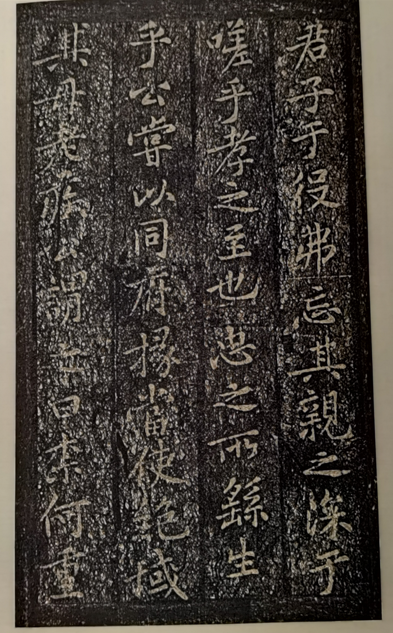 君子于役弗忘其親之深于
嗟乎孝之至也忠之所繇生
乎公嘗以同府掾當使絕域
其母老病公謂之曰柰何重